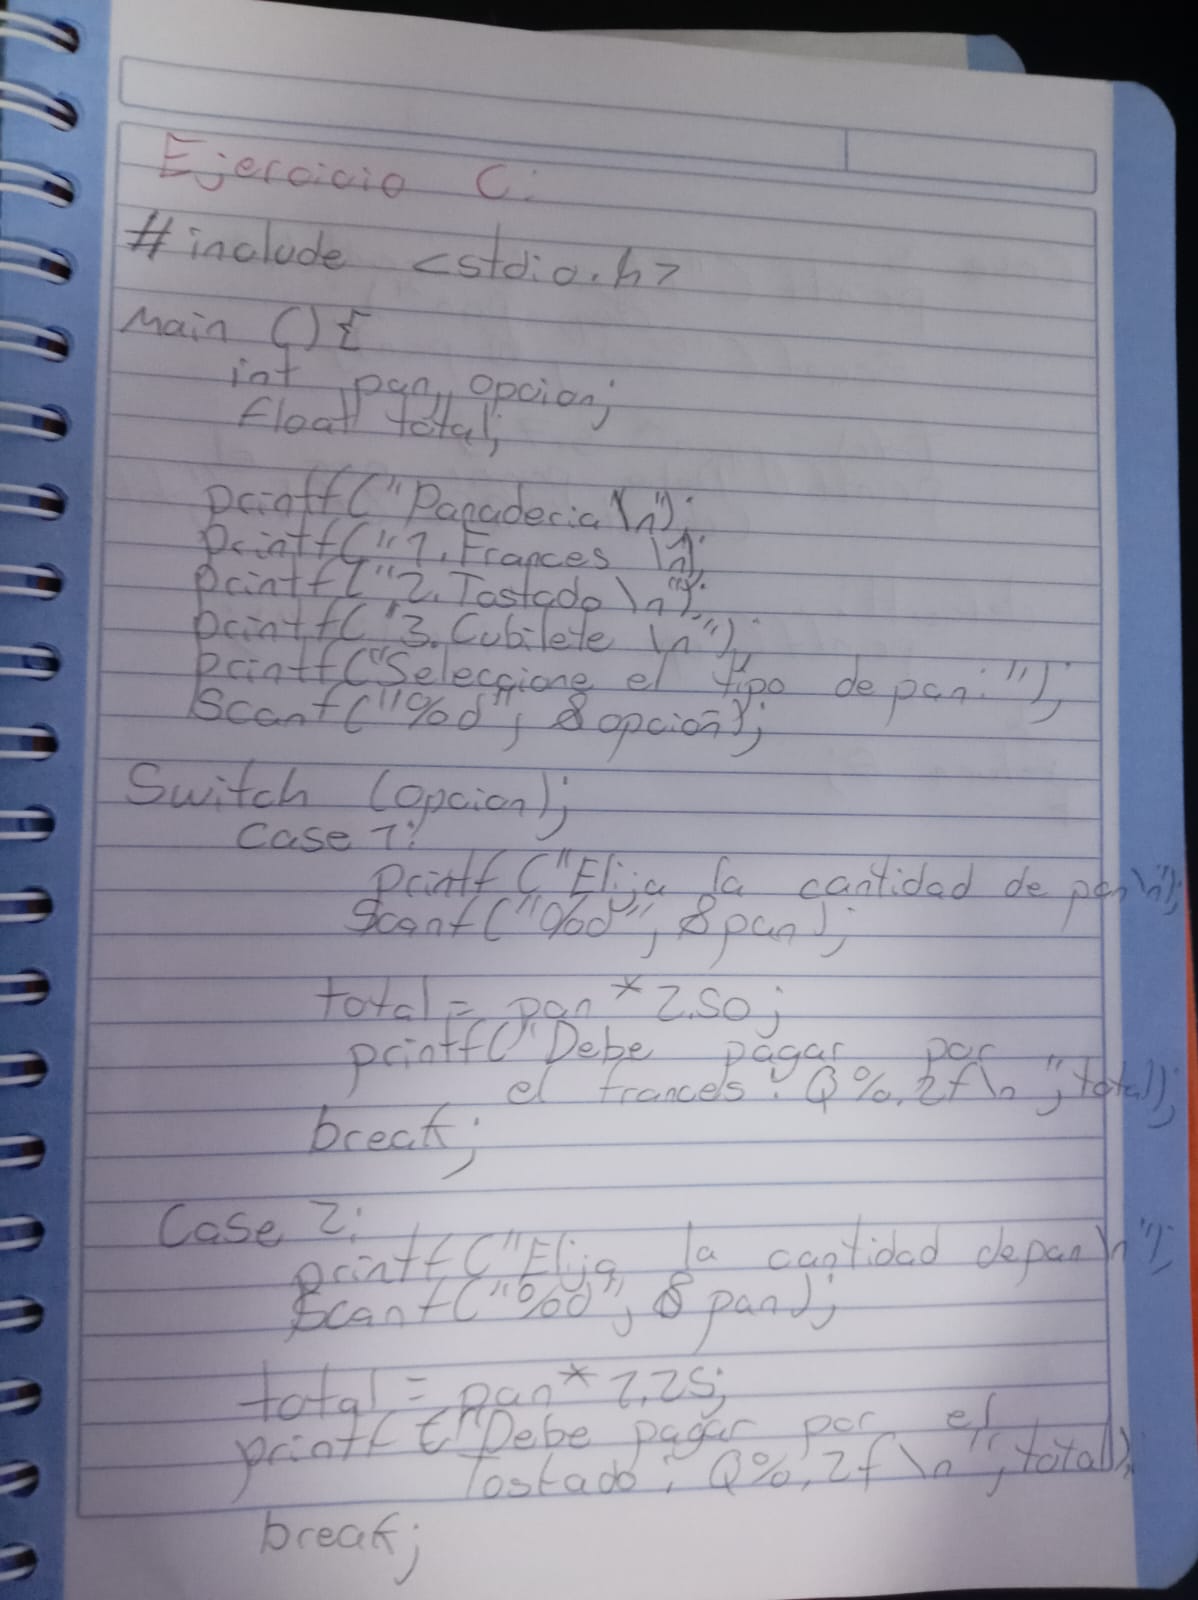 Ejercicio C:
#include <stdio.h>
Main () {
int pan, opcion;
float total;
printf("Panaderia \n");
printf("1. Frances \n");
printf("2. Tostado \n");
printf("3. Cubilete \n");
printf("Seleccione el tipo de pan: ");
Scanf("%d", &opcion);
Switch (opcion);
Case 1:
printf("Elija la cantidad de pan \n");
Scanf("%d", &pan);
total = pan * 2.50;
printf("Debe pagar por
el frances: Q%.2f\n", total);
break;
Case 2:
printf("Elija la cantidad de pan \n");
Scanf("%d", &pan);
total = pan * 2.25;
printf("Debe pagar por el
Tostado: Q%.2f \n", total);
break;